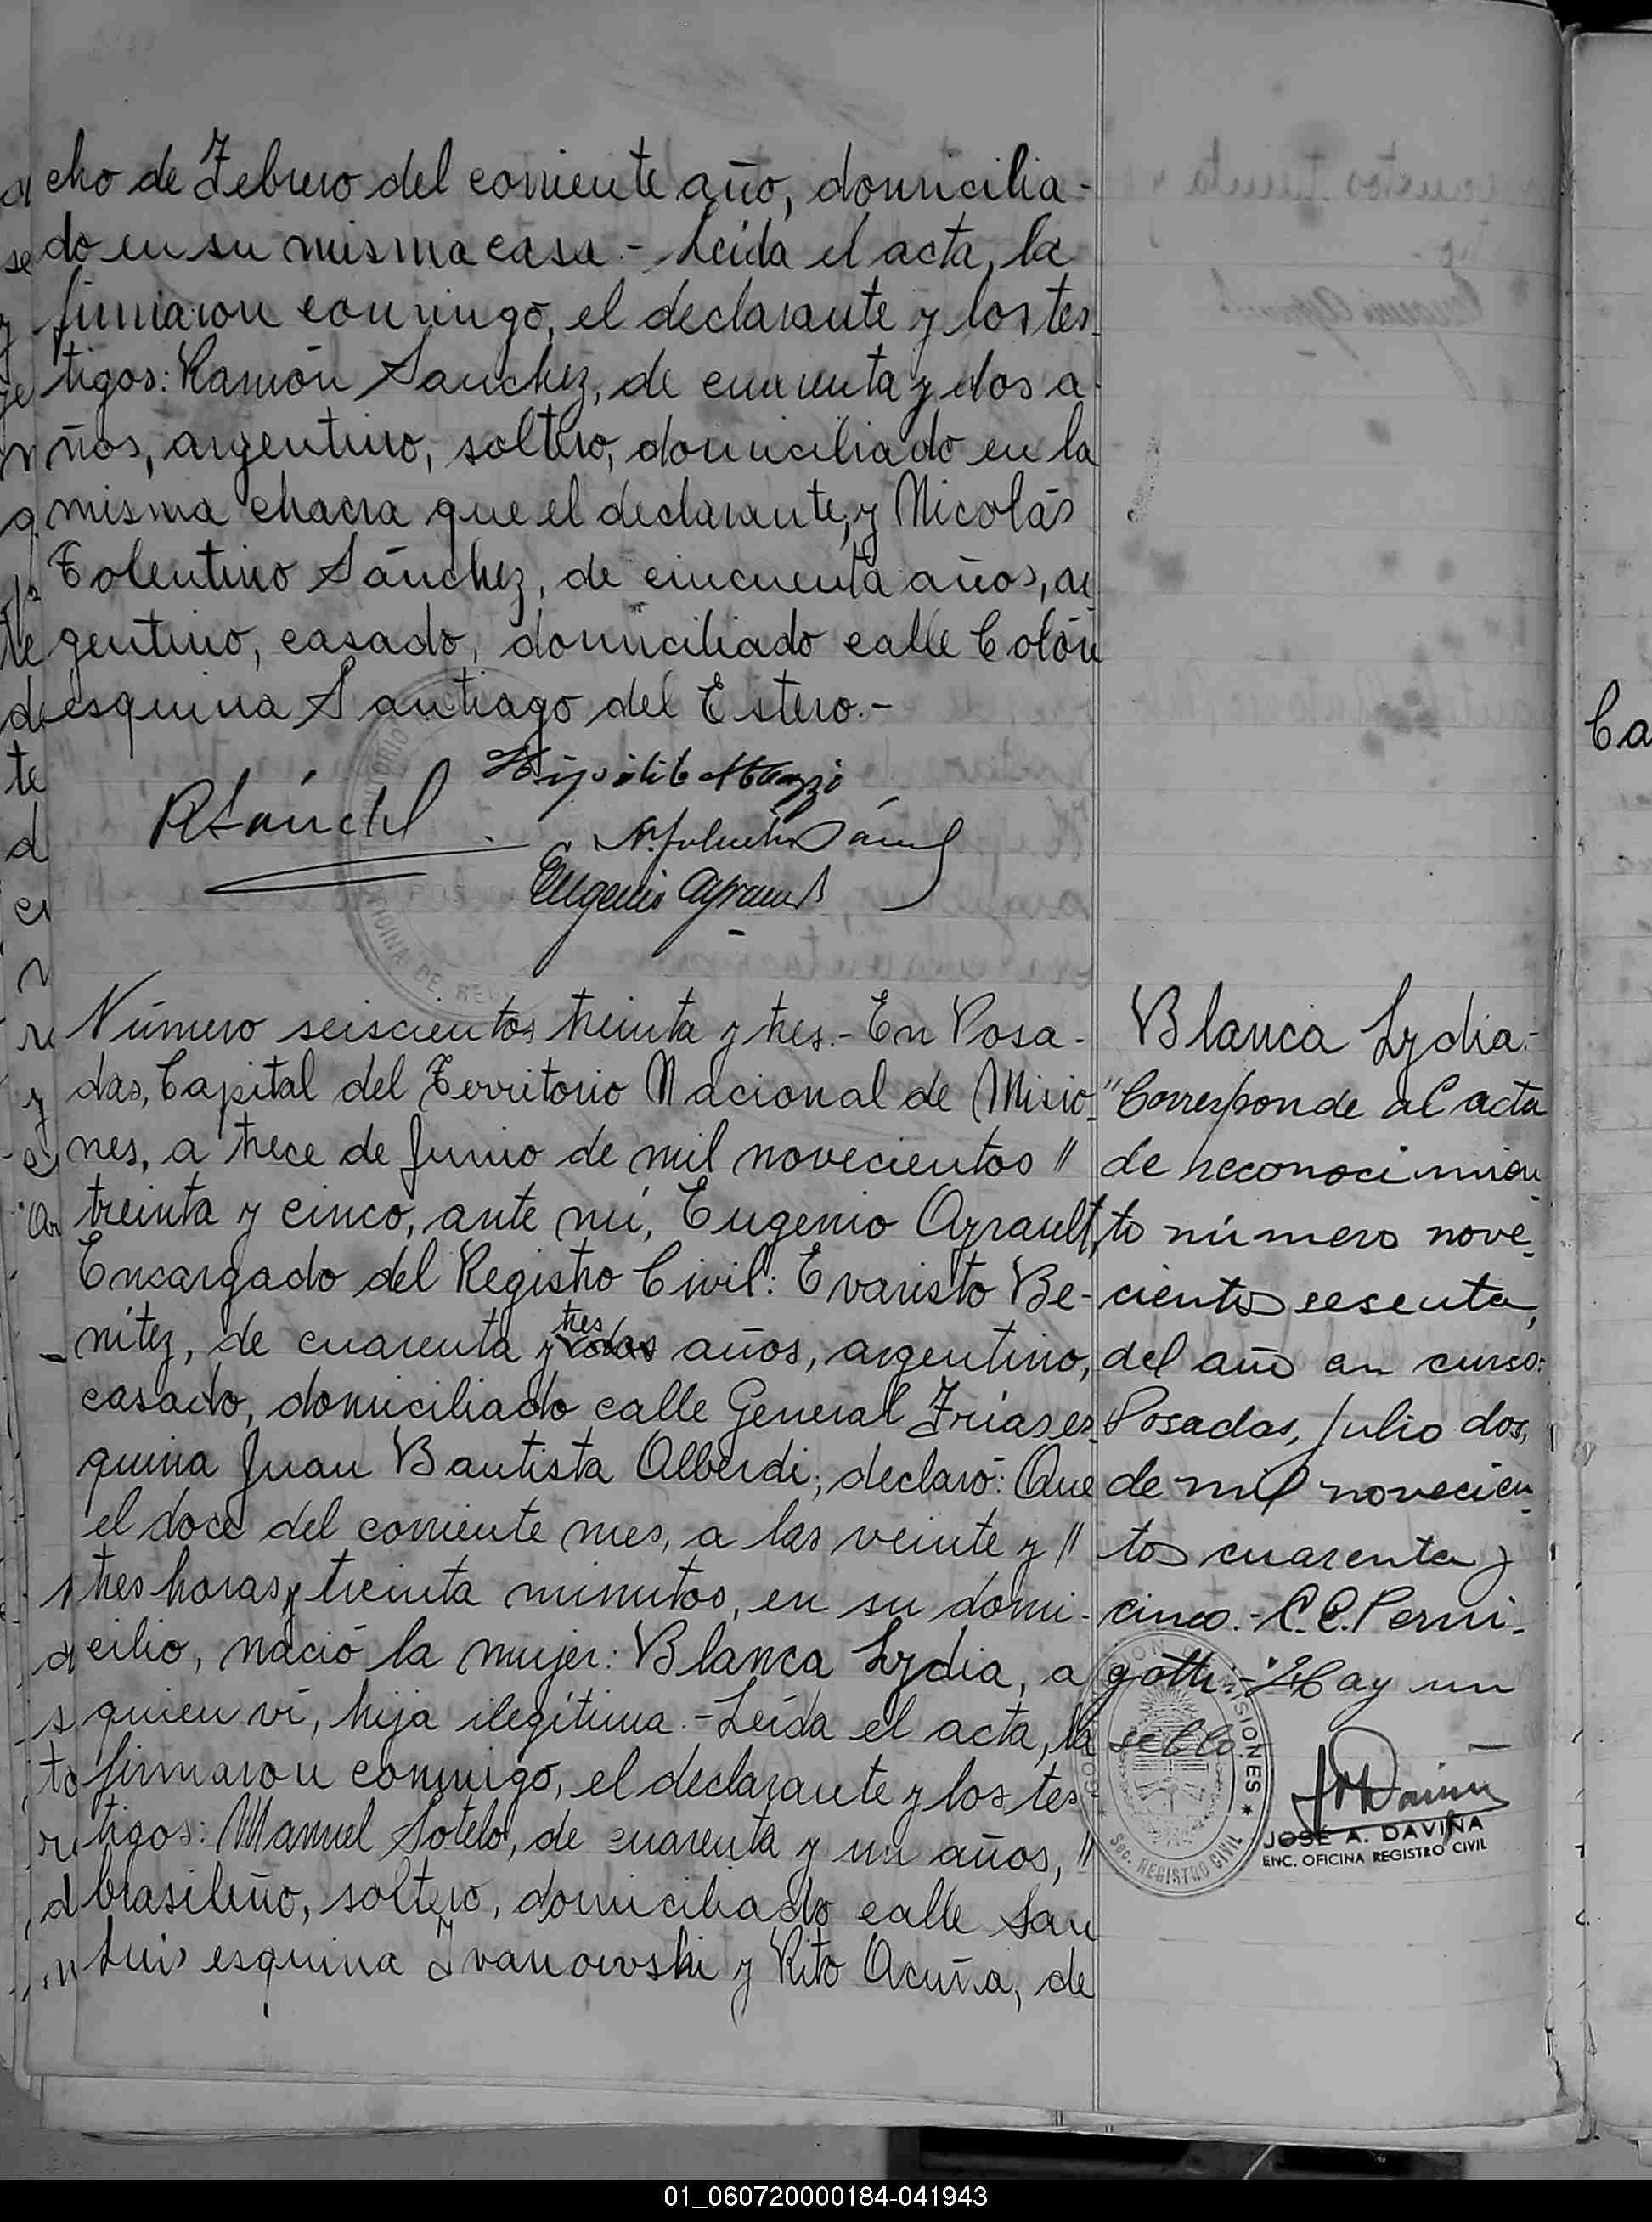 cho de Febrero del corriente año, domicilia-
do en su misma casa.- Leída el acta, la
firmaron conmigo, el declarante y los tes-
tigos: Ramón Sanchez, de cuarenta y dos a-
ños, argentino, soltero, domiciliado en la
misma chacra que el declarante, y Nicolás
Tolentino Sánchez, de cincuenta años, ar-
gentino, casado, domiciliado calle Colón
esquina Santiago del Estero.-
Hipólito
RSánchez
N. Tolentino Sánchez
Eugenio Ayrault
Número seiscientos treinta y tres.- En Posa-
das, Capital del Territorio Nacional de Misio-
nes, a trece de Junio de mil novecientos //
treinta y cinco, ante mí, Eugenio Ayrault,
Encargado del Registro Civil: Evaristo Be-
nítez, de cuarenta y tres años, argentino,
casado, domiciliado calle General Frías es-
quina Juan Bautista Alberdi; declaró: Que
el doce del corriente mes, a las veinte y //
tres horas y treinta minutos, en su domi-
cilio, nació la mujer: Blanca Lydia, a
quien ví, hija ilegítima.- Leída el acta, la
firmaron conmigo, el declarante y los tes-
tigos: Manuel Sotelo, de cuarenta y un años, //
brasileño, soltero, domiciliado calle San
Luis esquina Ivanowski y Rito Acuña, de
Blanca Lydia.-
"Corresponde al acta
de reconocimien-
to número nove-
cientos sesenta,
del año en curso:
Posadas, Julio dos,
de mil novecien-
tos cuarenta y
cinco.- C.C. Perni-
gotti.- "Hay un
sello
JOSE A. DAVIÑA
ENC. OFICINA REGISTRO CIVIL
MISIONES ★
Sec. REGISTRO CIVIL
OFICINA DE REG
Ca
01_060720000184-041943